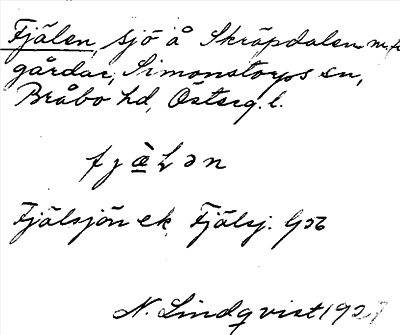 Fjälen, sjö å Skräpdalen m. fl.
gårdar, Simonstorps sn,
Bråbo hd, Österg. l.
fjälən
Fjälsjön ek. Fjälsj. G56
N. Lindqvist 1927